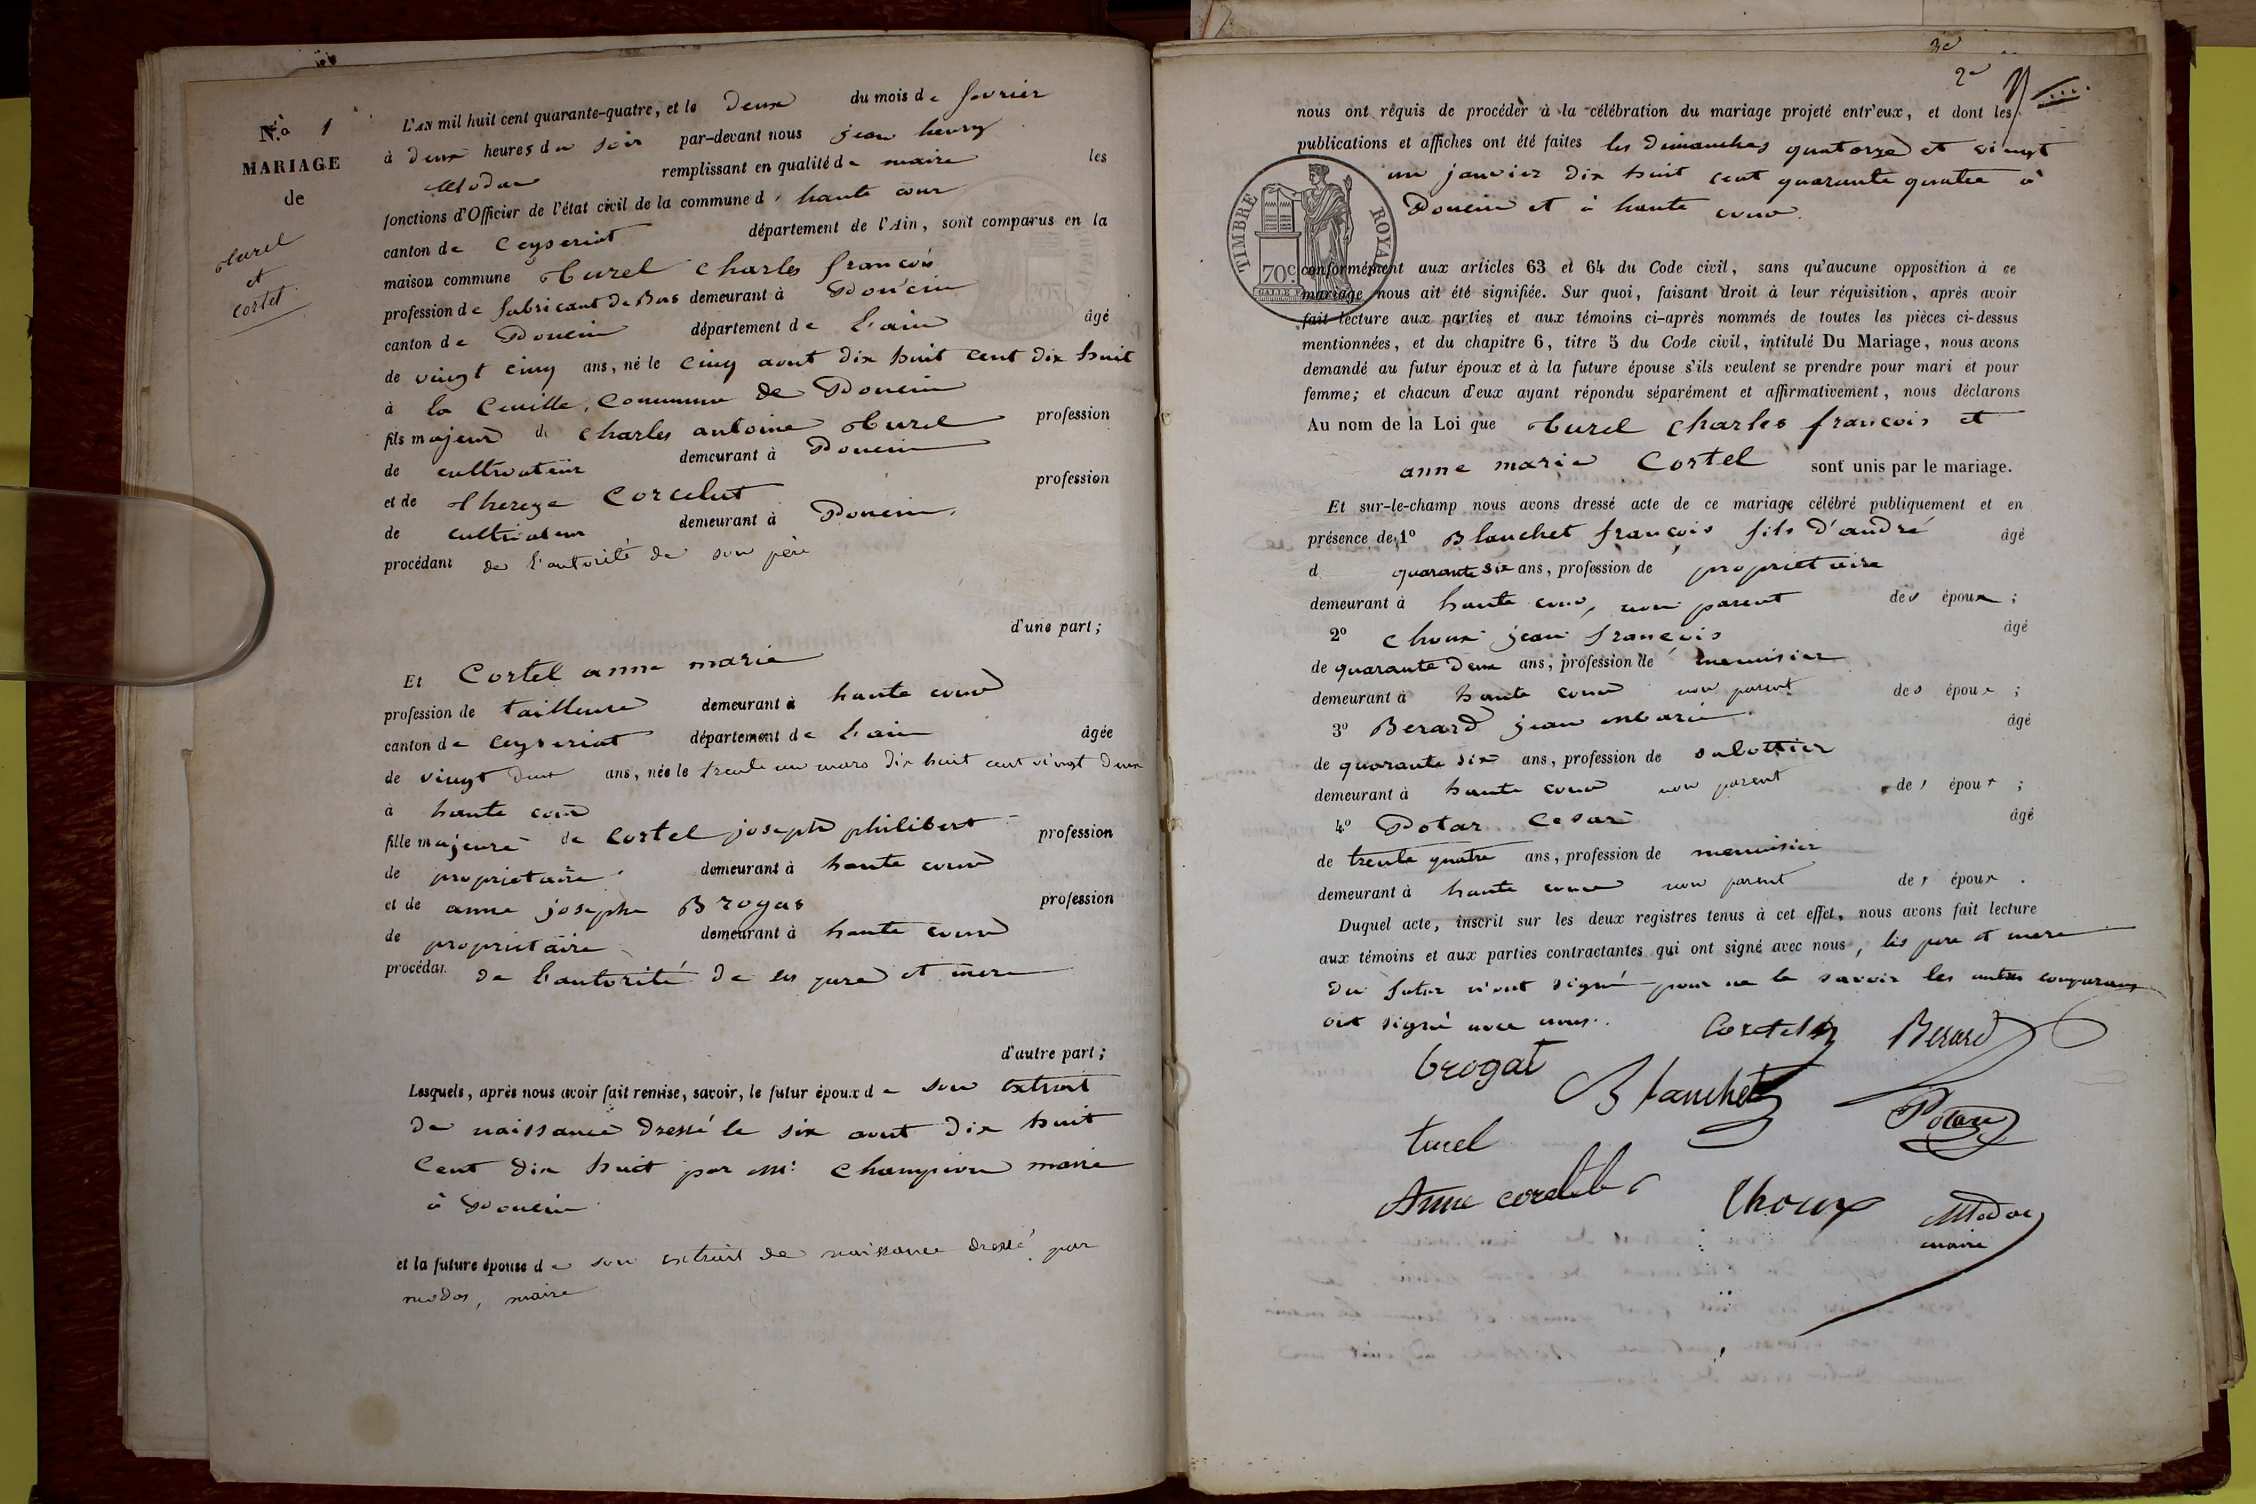 N.º 1
MARIAGE
de
turel
et
cortel
L'AN mil huit cent quarante-quatre, et le deux du mois de fevrier
à deux heures du soir par-devant nous jean henry
Modas remplissant en qualité de maire les
fonctions d'Officier de l'état civil de la commune d' haute cour
canton de Ceyseriat département de l'Ain, sont comparus en la
maison commune turel Charles francois
profession de fabricant de Bas demeurant à Doucin
canton de Doucin département de l'ain âgé
de vingt cinq ans, né le cinq aout dix huit cent dix huit
à la Ceuille, Commune de Doucin
fils majeur de Charles antoine turel profession
de cultivateur demeurant à Doucin
et de thereze Corcelut profession
de cultivateur demeurant à Doucin,
procédant de l'autorité de son père
d'une part;
Et Cortel anne marie
profession de tailleuse demeurant à haute cour
canton de Ceyseriat département de l'ain âgée
de vingt deux ans, née le trente un mars dix huit cent vingt deux
à haute cour
fille majeure de Cortel joseph philibert profession
de proprietaire demeurant à haute cour
et de anne josephe Brogas profession
de proprietaire demeurant à haute cour
procédan de l'autorité de ses pere et mere
d'autre part;
Lesquels, après nous avoir fait remise, savoir, le futur époux de son extrait
de naissance dressé le six aout dix huit
Cent dix huit par Mr. Champion maire
à Doucin
et la future épouse de son extrait de naissance dressé par
modas, maire
3e
2e
nous ont requis de procéder à la célébration du mariage projeté entr'eux, et dont les
publications et affiches ont été faites les dimanches quatorze et vingt
un janvier dix huit cent quarante quatre à
Doucin et à haute cour.
TIMBRE ROYAL
70c
conformément aux articles 63 et 64 du Code civil, sans qu'aucune opposition à ce
mariage nous ait été signifiée. Sur quoi, faisant droit à leur réquisition, après avoir
fait lecture aux parties et aux témoins ci-après nommés de toutes les pièces ci-dessus
mentionnées, et du chapitre 6, titre 5 du Code civil, intitulé Du Mariage, nous avons
demandé au futur époux et à la future épouse s'ils veulent se prendre pour mari et pour
femme; et chacun d'eux ayant répondu séparément et affirmativement, nous déclarons
Au nom de la Loi que turel Charles francois et
anne marie Cortel sont unis par le mariage.
Et sur-le-champ nous avons dressé acte de ce mariage célébré publiquement et en
présence de 1º Blanchet françois fils d'andré âgé
d quarante six ans, profession de proprietaire
demeurant à haute cour, non parent des époux ;
2º Choux jean françois âgé
de quarante deux ans, profession de menuisier
demeurant à haute cour non parent des époux ;
3º Berard jean marie âgé
de quarante six ans, profession de sabottier
demeurant à haute cour non parent des époux ;
4º Potar Cesar âgé
de trente quatre ans, profession de menuisier
demeurant à haute cour non parent des époux .
Duquel acte, inscrit sur les deux registres tenus à cet effet, nous avons fait lecture
aux témoins et aux parties contractantes qui ont signé avec nous, les pere et mere
du futur n'ont signé pour ne le savoir les autres comparans
ont signé avec nous.
Cortel Berard
brogat
Blanchet
Potare
turel
Anne cortel
Choux
Modas
maire